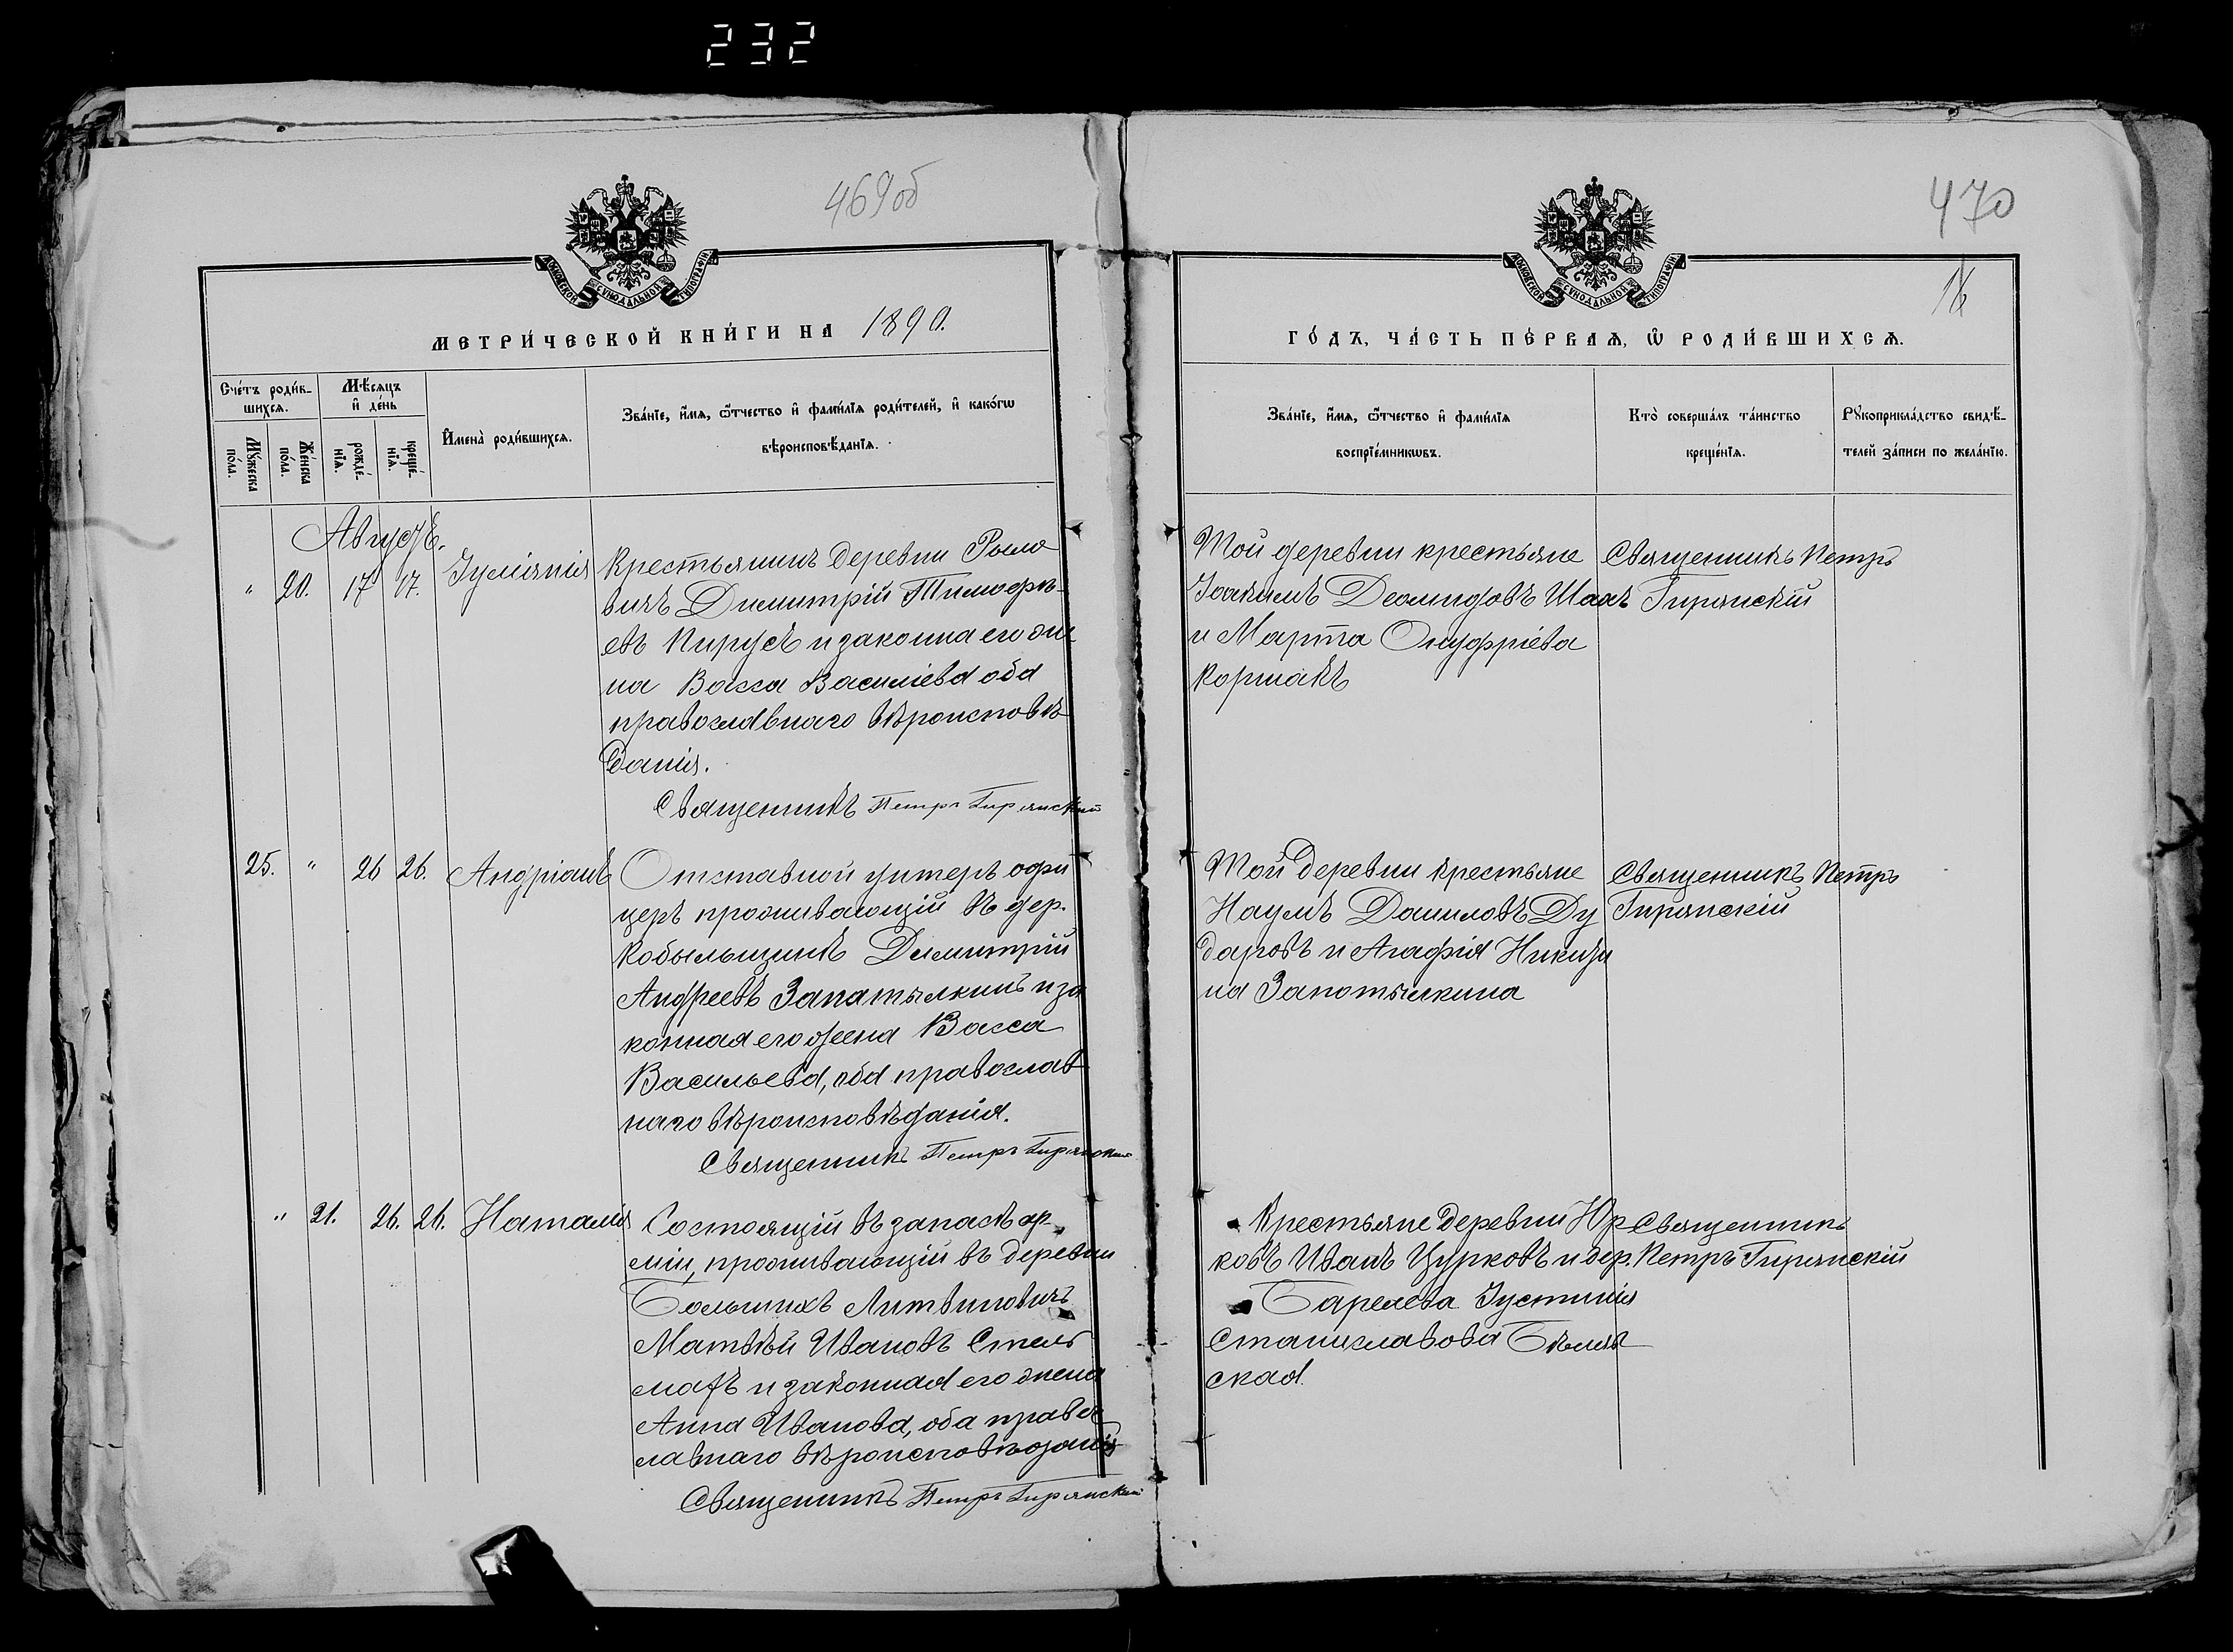 232
469об
МОСКОВСКОЙ СѴНОДАЛЬНОЙ ТИПОГРАФІИ
МЕТРИ́ЧЕСКОЙ КНИ́ГИ НА 1890.
Сче́тъ роди́в-
шихсѧ.
Мѣ́сѧцъ
и҆ де́нь
Мꙋ́жеска
по́ла.
Же́нска
по́ла.
рожде́-
нїѧ.
креще́-
нїѧ.
И҆мена̀ роди́вшихсѧ.
Зва́нїе, и҆́мѧ, ѻ҆́тчество и҆ фамі́лїѧ роди́телей, и҆ како́гѡ
вѣроисповѣ́данїѧ.
Августъ.
" 20. 17 17. Іуліанія
Крестьянинъ деревни Рыло
вичъ Димитрій Тимофѣ-
евъ Пирусъ и законна его же
на Васса Василіева оба
православнаго вѣроисповѣ
данія.
Священникъ Петръ Гирянскій
25. " 26 26. Андріанъ
Отставной унтеръ офи
церъ проживающій въ дер.
Кобыльщинѣ Димитрій
Андреевъ Запатылкинъ и за
конная его жена Васса
Васильева, оба православ
наго вѣроисповѣданія.
Священникъ Петръ Гирянскій
" 21. 26. 26. Наталія
Состоящій въ запасѣ ар-
міи, проживающій въ деревни
Большихъ Литвиновичъ
Матвѣй Ивановъ Стель
махъ и законная его жена
Анна Иванова, оба правос
лавнаго вѣроисповѣданія
Священникъ Петръ Гирянскій
470
16
МОСКОВСКОЙ СѴНОДАЛЬНОЙ ТИПОГРАФІИ
ГО́ДЪ, ЧА́СТЬ ПЕ́РВАѦ, Ѡ҆ РОДИ́ВШИХСѦ.
Зва́нїе, и҆́мѧ, ѻ҆́тчество и҆ фамі́лїѧ
воспрїе́мникѡвъ.
Кто̀ соверша́лъ та́инство
креще́нїѧ.
Рꙋкоприкла́дство свидѣ́-
телей за́писи по жела́нїю.
Той деревни крестьяне
Іоакимъ Деомидовъ Шахъ
и Марта Онуфріева
Коршакъ
Священникъ Петръ
Гирянскій
Той деревни крестьяне
Наумъ Даниловъ Ду
даровъ и Агафія Никити
на Запотылкина
Священникъ Петръ
Гирянскій
Крестьяне деревни Юр
ковъ Иванъ Цурковъ и дер.
Барелева Іустинія
Станиславова Бѣляв
ская.
Священникъ
Петръ Гирянскій